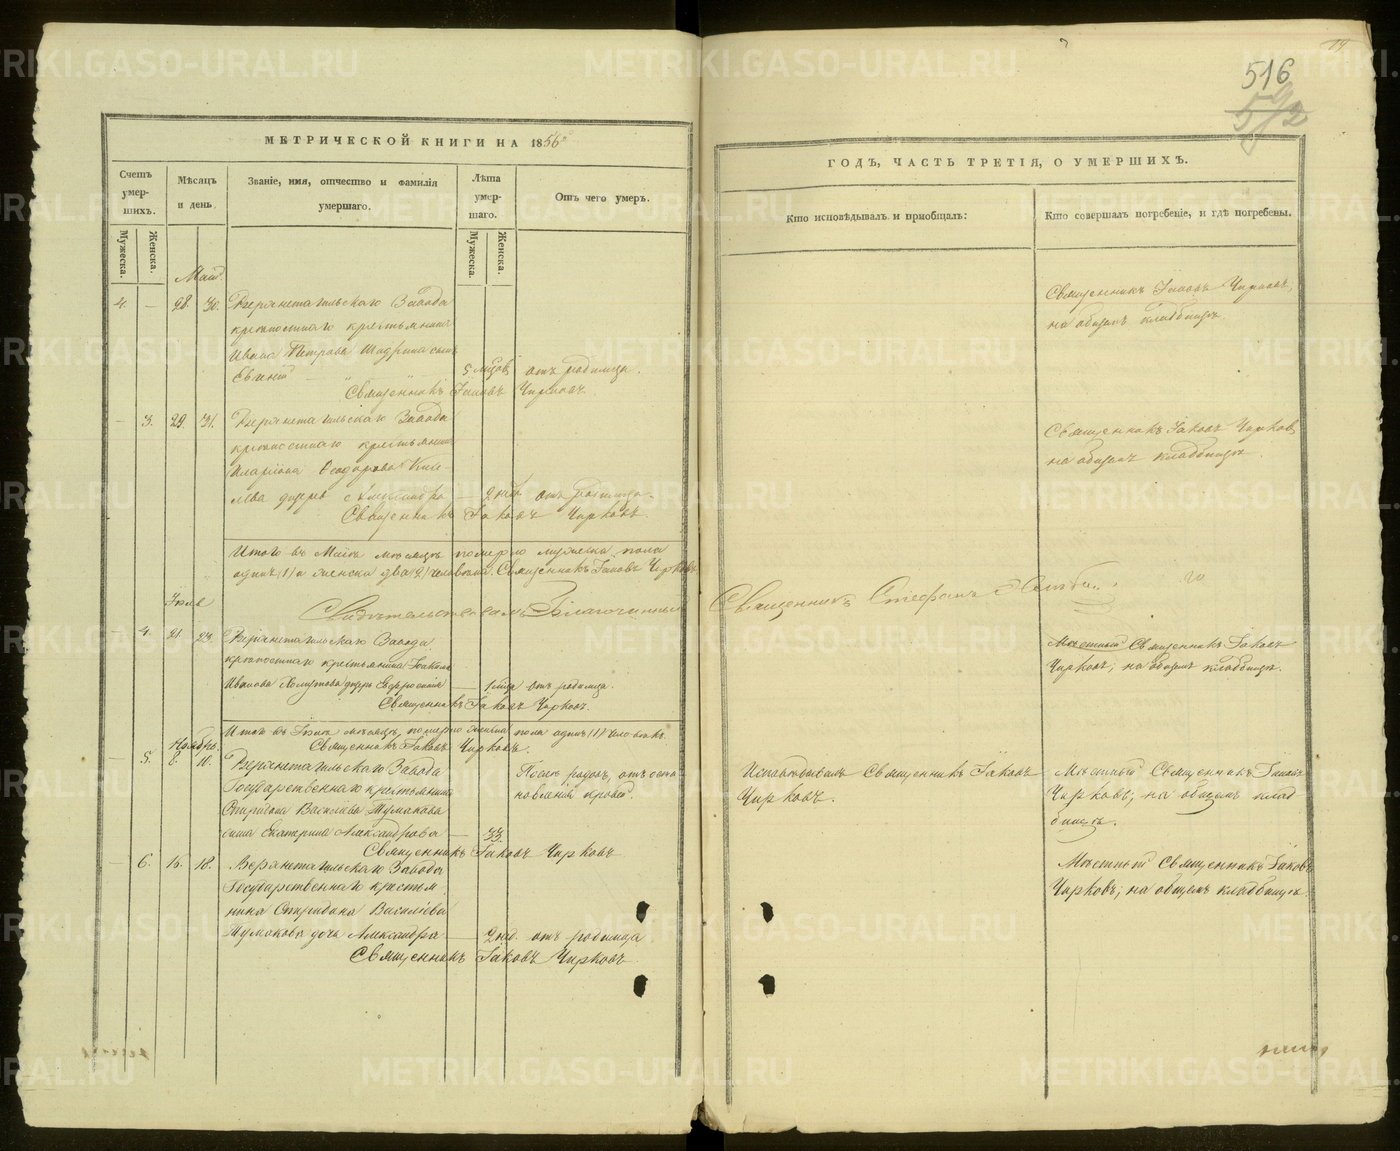 19
516
592
МЕТРИЧЕСКОЙ КНИГИ НА 1856й
ГОДЪ, ЧАСТЬ ТРЕТІЯ, О УМЕРШИХЪ.
Счетъ умер-шихъ.
Мѣсяцъ и день
Званіе, имя, отчество и фамилія умершаго.
Лѣта умер-шаго.
Отъ чего умеръ.
Кто исповѣдывалъ и приобщалъ:
Кто совершалъ погребеніе, и гдѣ погребены.
Мужеска.
Женска.
Мужеска.
Женска.
Май.
4. — 28. 30. Верхнетагильскаго Завода
крѣпостнаго крестьянина
Ивана Петрова Шадрина сынъ
Евѳимій — 5 мѣсяцов отъ родимца.
Священникъ Іаковъ Чирковъ.
Священникъ Іаковъ Чирковъ,
на общемъ кладбищѣ.
— 3. 29. 31. Верхнетагильскаго Завода
крѣпостнаго крестьянина
Иларіона Ѳеодорова
дочерь Александра — 2 нед. отъ родимца.
Священникъ Іаковъ Чирковъ.
Священникъ Іаковъ Чирковъ,
на общемъ кладбищѣ.
Итого въ Маіѣ мѣсяцѣ померло мужеска пола
одинъ (1) и женска два (2) человѣка. Священникъ Іаковъ Чирковъ
Свидѣтельствовалъ Благочинный Священникъ Стефанъ
4. 21. 23. Верхнетагильскаго Завода
крѣпостнаго крестьянина
Иванова дочерь — 1 мѣсяца отъ родимца.
Священникъ Іаковъ Чирковъ.
Мѣстный Священникъ Іаковъ
Чирковъ; на общемъ кладбищѣ.
Итого въ мѣсяцѣ померло женска пола одинъ (1) человѣкъ.
Священникъ Іаковъ Чирковъ.
Ноябрь.
— 5. 8. 10. Верхнетагильскаго Завода
Государственнаго крестьянина
Спиридона Василіева Тумакова
жена Екатерина Александрова — 33.
Послѣ родовъ, отъ оста-
новленія кровей.
Священникъ Іаковъ Чирковъ
Исповѣдывалъ Священникъ Іаковъ
Чирковъ.
Мѣстный Священникъ Іаковъ
Чирковъ; на общемъ клад
бищѣ.
— 6. 16. 18. Верхнетагильскаго Завода
Государственнаго крестья
нина Спиридона Василіева
Тумакова дочь Александра — 2 нед. отъ родимца
Священникъ Іаковъ Чирковъ.
Мѣстный Священникъ Іаковъ
Чирковъ; на общемъ кладбищѣ.
METRIKI.GASO-URAL.RU